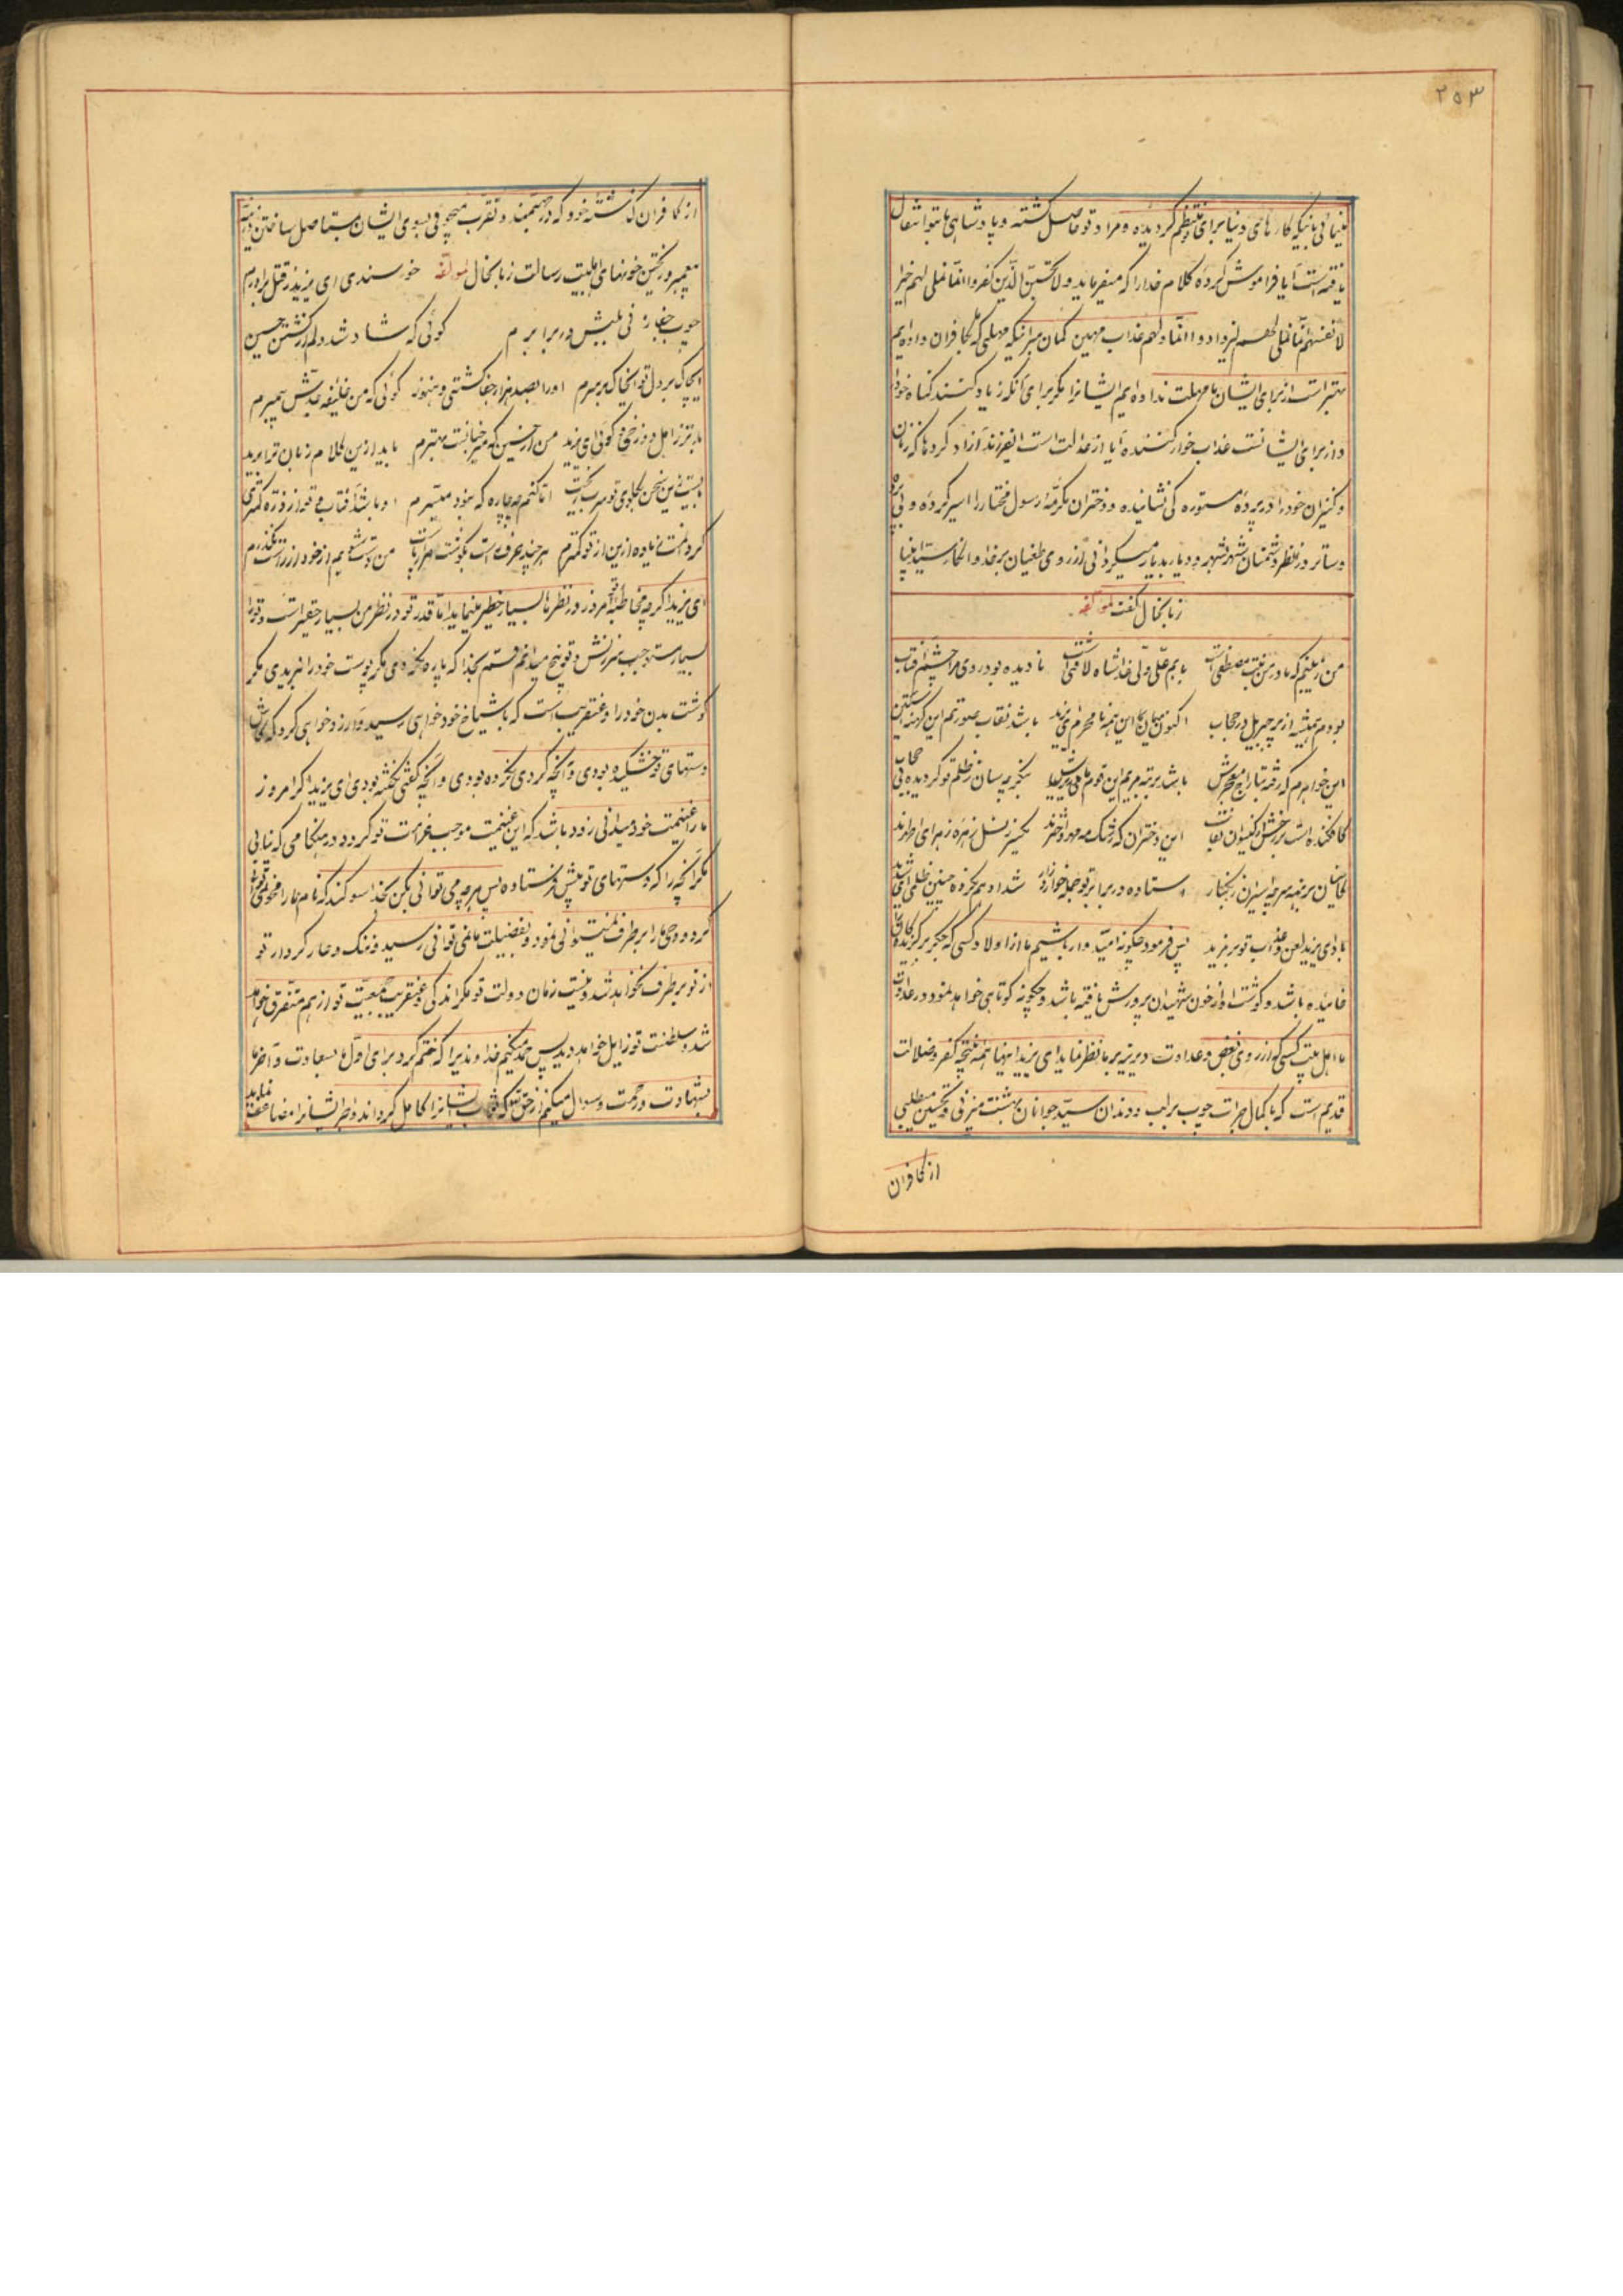 ۲۵۳
مینمائی بانیکه کارهای دنیا برای تو منتظم گردیده و مراد تو حاصل گشته و پادشاهی ما بتو انتقال
یافته است آیا فراموش کرده کلام خدا را که میفرماید ولا تحسبن الذین کفروا انما نملی لهم خیر
لانفسهم انما نملی لهم لیزدادوا اثما و لهم عذاب مهین گمان مبر اینکه مهلتی که بکافران داده‌ایم
بهتر است از برای ایشان ما مهلت نداده‌ایم ایشانرا مگر برای آنکه زیاد کنند گناه خود را
و از برای ایشانست عذاب خوار کننده آیا از عدالت است ایفرزند آزاد کرده‌ها که زنان
و کنیزان خود را در پرده مستوره کی نشانیده و دختران مکرمه رسول مختار را اسیر کرده و بی پرده
و ساتر در نظر دشمنان شهر بشهر و دیار بدیار میگردانی از روی طغیان بر خدا و انکار سید انبیا
زبانحال گفت لمولفه
من زینبم که مادر من بنت مصطفی است بابم علی ولی خدا شاه لافتی است نادیده بود روی مرا چشم آفتاب
بودم همیشه از پر جبریل در حجاب اکنون میان این همه نامحرم ای یزید باشد نقاب صورتم این کهنه آستین
این خواهرم که رفته بتاراج معجرش باشد برتبه مریم این قوم بنگر چسان ز ظلم تو گردیده بی حجاب
کافکنده است بر رخش از گیسوان نقاب این دختران که رشک مه و مهر و اخترند یکسر ز نسل زهره زهرای اطهرند
کایشان برهنه سر چو اسیران زنگبار استاده در برابر تو جمله خوار و زار شداد هم نکرده چنین ظلمی ای شدید
بادا ی یزید لعن و عذاب تو بر مزید پس فرمود چگونه امیدوار باشیم ما از اولاد کسی که جگر برگزیدگان
خائیده باشد و گوشت او از خون شهیدان پرورش یافته باشد و چگونه کوتاهی خواهد نمود در عداوت
ما اهل بیت کسیکه از روی بغض و عداوت دیرینه بر ما نظر نماید ای یزید اینها همه نتیجه کفر و ضلالت
قدیم است که با کمال جرات چوب بر لب و دندان سید جوانان بهشت میزنی و تحسین میطلبی
از کافران
از کافران گذشته خود که در جهنمند و تقرب میجوئی بسوی ایشان بمستاصل ساختن ذریه
پیغمبر و ریختن خونهای اهلبیت رسالت زبانحال لمولفه خورسندی ای یزید ز قتل برادرم
چوب جفا زنی بلبش در برابرم گوئی که شاد شد دلم از کشتن حسین
ایخاک بر دل تو ایخاک بر سرم او را بصد هزار جفا کشتی و هنوز گوئی که من خلیفه جدش پیمبرم
بدتر ز اهل دوزخی و گوئی ای یزید من از حسین که میر جنانست بهترم باید ازین کلام زبان ترا برید
بستی ازین سخن گلوی تو سر برید اما کنم چه چاره که نبود میسرم او باشد آفتاب و تو از ذره کمتری
گردانمت زیاده ازین از تو کمترم هر چند عرض است بگوشت من و تشویم از خود از راست نگذرم
ای یزید اگرچه مخاطبه امروز در نظرها بسیار خطیر مینماید اما قدر تو در نظر من بسیار حقیر است و ترا
بسیار مستوجب سرزنش و توبیخ میدانم قسم بخدا که پاره نکرده‌ای مگر پوست خود را نبریدی مگر
گوشت بدن خود را و عنقریب است که باشیاخ خود خواهی رسید و آرزو خواهی کرد که کاش
دستهای تو خشکیده بودی و آنچه کردی نکرده بودی و آنچه گفتی نگفته بودی ای یزید اگر امروز
ما را غنیمت خود میدانی زود باشد که این غنیمت موجب غرامت تو گردد در هنگامی که نیابی
مگر آنچه را که دستهای تو پیش فرستاده پس هر چه می توانی بکن بخدا سوگند که نام ما را محو نمیتوانی
کرد و وحی ما را بر طرف نمیتوانی نمود و بفضیلت ما نمی توانی رسید و ننگ و عار کردار تو
از تو بر طرف نخواهد شد و نیست زمان دولت تو مگر اندکی و عنقریب جمعیت تو از هم متفرق خواهد
شد و سلطنت تو زایل خواهد گردید پس حمد میکنم خداوندیرا که ختم کرد برای اول ما بسعادت و آخر ما
بشهادت و رحمت و سوال میکنم از حق تعالی که ثواب ایشانرا کامل گرداند و اجر ایشانرا مضاعف نماید